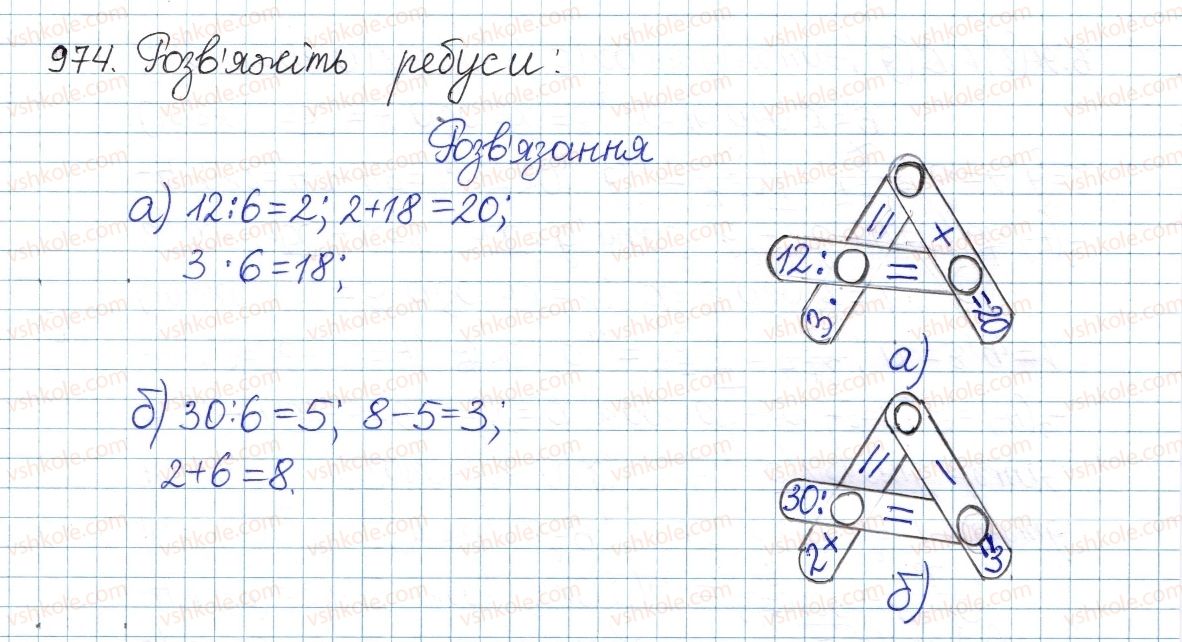 974. Розв'яжіть ребуси:
Розв'язання
а) 12:6=2; 2+18=20;
3·6=18;
12: =
=
+
3·
=20
а)
б) 30:6=5; 8-5=3;
2+6=8.
30: =
=
-
2+
=3
б)
vshkole.com